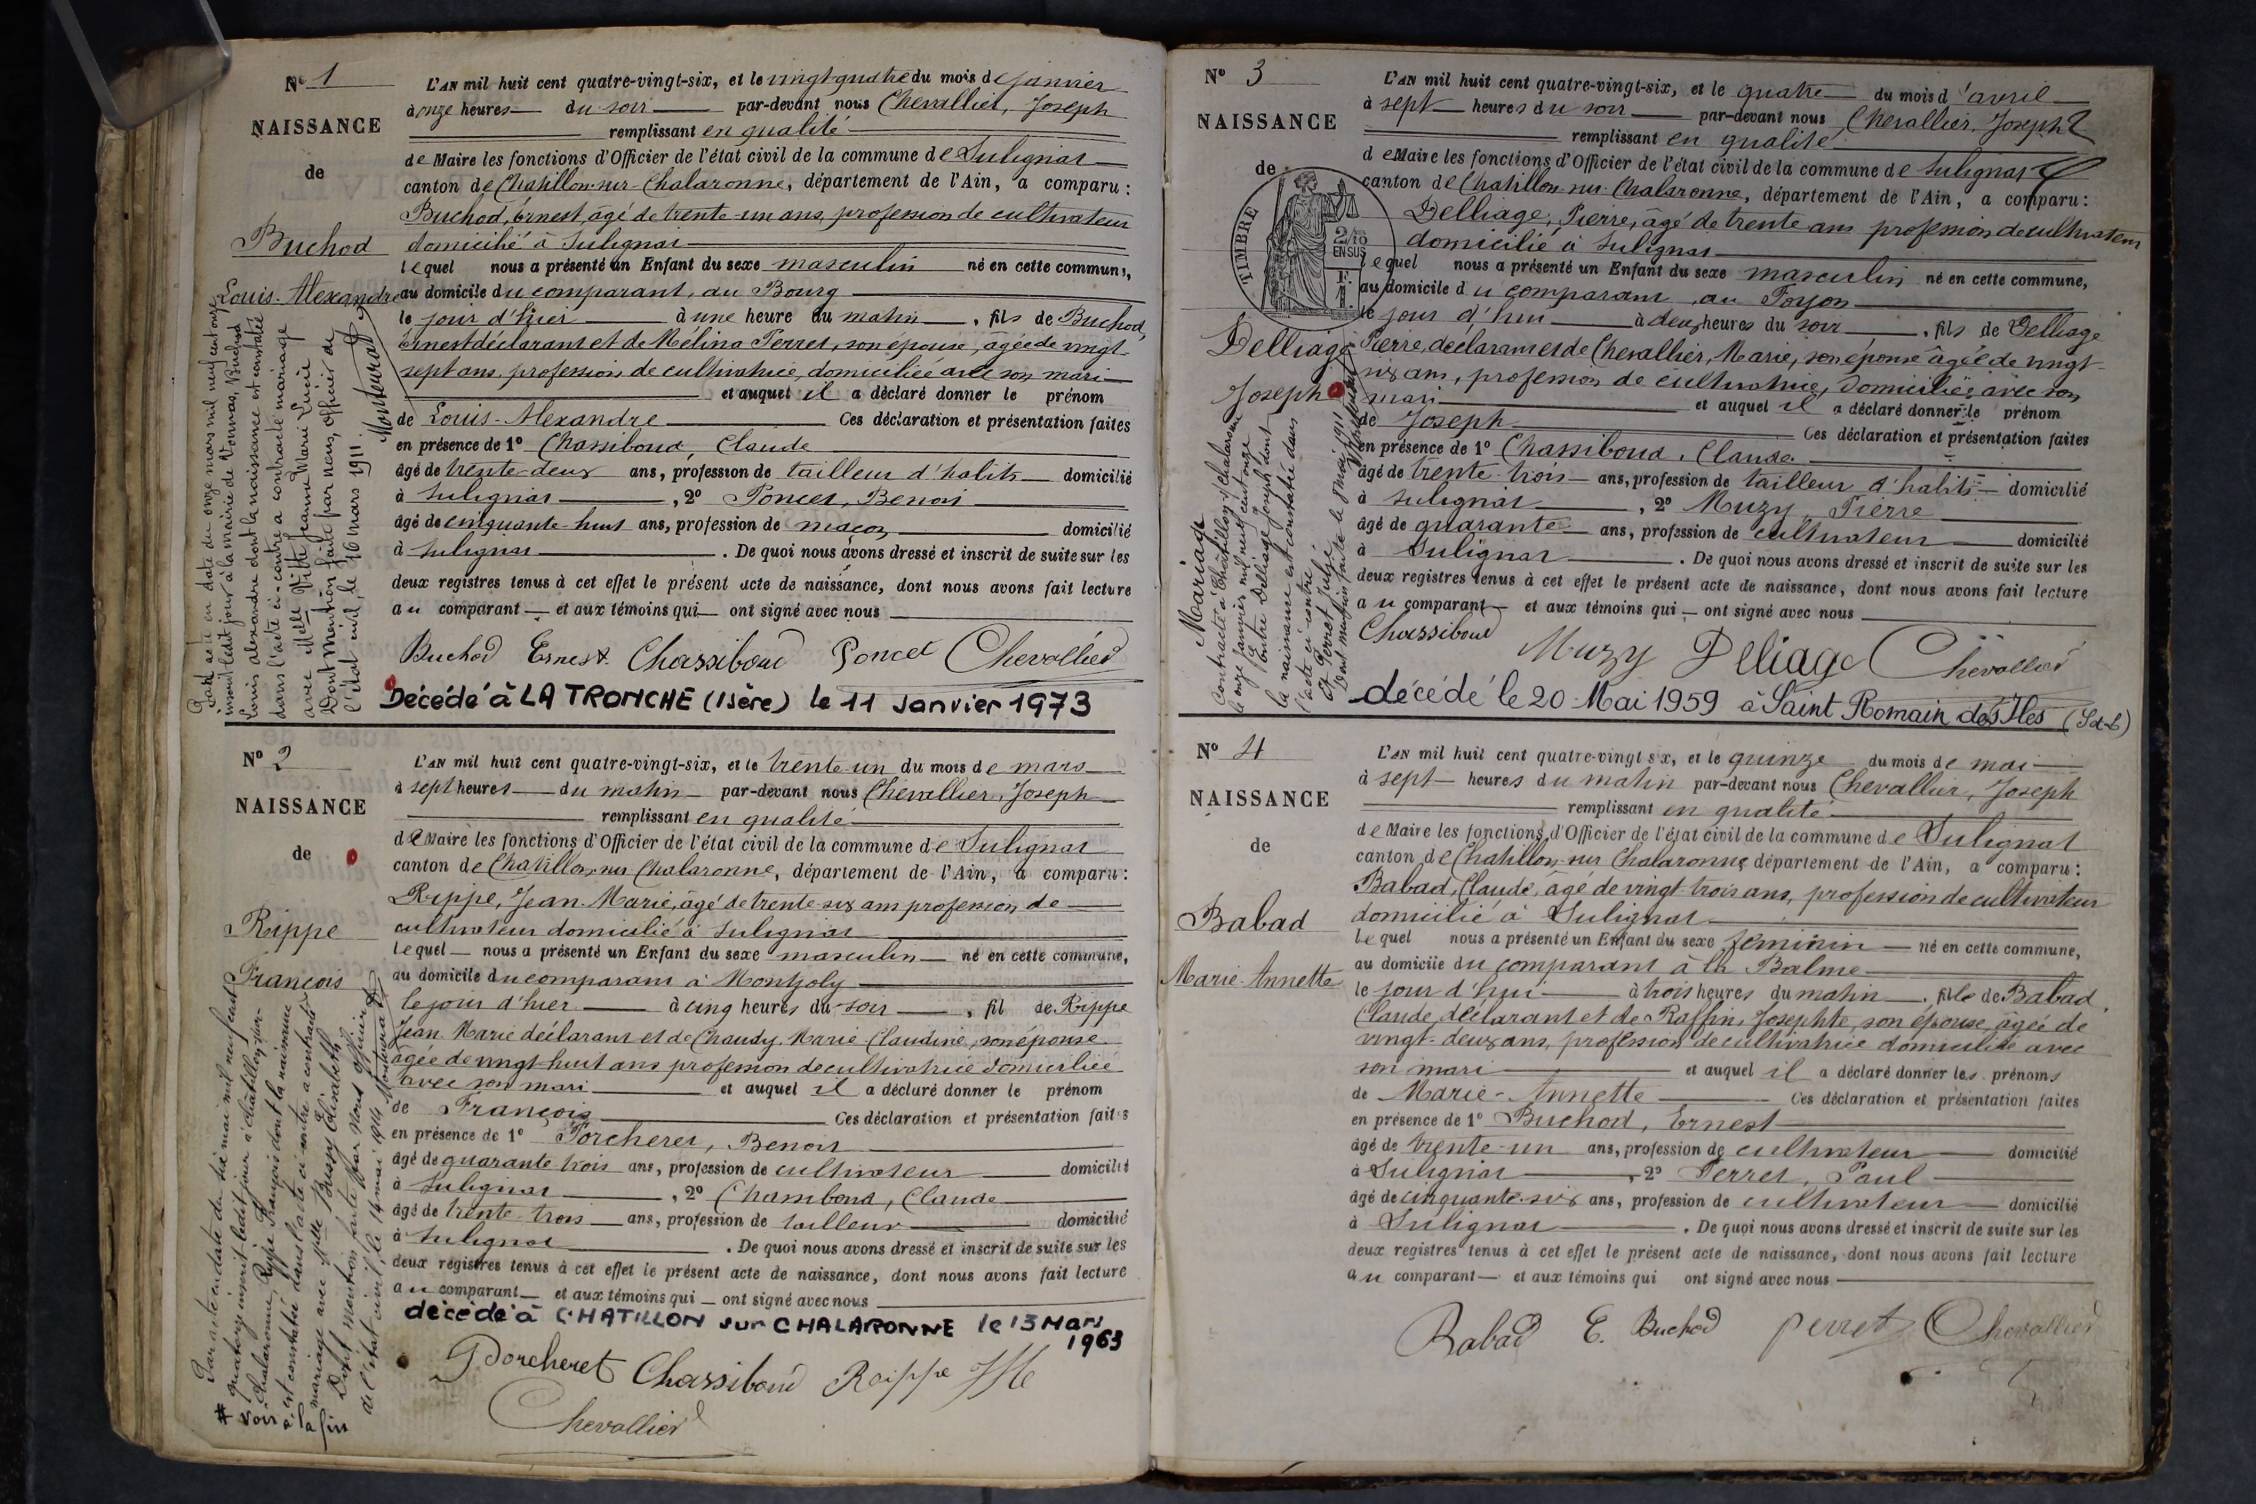 N° 1
NAISSANCE
de
Buchod
Louis-Alexandre
L'AN mil huit cent quatre-vingt-six, et le vingt-quatre du mois de janvier
à onze heures du soir par-devant nous Chevallier, Joseph
remplissant en qualité
de Maire les fonctions d'Officier de l'état civil de la commune de Sulignat
canton de Chatillon-sur-Chalaronne, département de l'Ain, a comparu :
Buchod, Ernest, âgé de trente-un ans, profession de cultivateur
domicilié à Sulignat
lequel nous a présenté un Enfant du sexe masculin né en cette commune,
au domicile du comparant, au Bourg
le jour d'hier à une heure du matin, fils de Buchod,
Ernest déclarant et de Mélina Perret, son épouse, âgée de vingt-
sept ans, profession de cultivatrice, domiciliée avec son mari
et auquel il a déclaré donner le prénom
de Louis-Alexandre Ces déclaration et présentation faites
en présence de 1° Chassiboud, Claude
âgé de trente-deux ans, profession de tailleur d'habits domicilié
à Sulignat, 2° Poncet, Benoit
âgé de cinquante-huit ans, profession de maçon domicilié
à Sulignat. De quoi nous avons dressé et inscrit de suite sur les
deux registres tenus à cet effet le présent acte de naissance, dont nous avons fait lecture
au comparant et aux témoins qui ont signé avec nous
Buchod Ernest Chassiboud Poncet Chevallier
Décédé à LA TRONCHE (Isère) le 11 Janvier 1973
Par acte en date du onze mars mil neuf cent onze,
inscrit ledit jour à la mairie de Vonnas, Buchod
Louis Alexandre dont la naissance est constatée
dans l'acte ci-contre a contracté mariage
avec Melle Vitte Jeanne Marie Lucie
Dont mention faite par nous, officier de
l'état civil, le 16 mars 1911.
Montmurat
N° 2
NAISSANCE
de
Rippe
François
L'AN mil huit cent quatre-vingt-six, et le trente-un du mois de mars
à sept heures du matin par-devant nous Chevallier, Joseph
remplissant en qualité
de Maire les fonctions d'Officier de l'état civil de la commune de Sulignat
canton de Chatillon-sur-Chalaronne, département de l'Ain, a comparu :
Rippe, Jean-Marie, âgé de trente-six ans profession de
cultivateur domicilié à Sulignat
lequel nous a présenté un Enfant du sexe masculin né en cette commune,
au domicile du comparant à Montjoly
le jour d'hier à cinq heures du soir, fil de Rippe
Jean-Marie déclarant et de Chaudy Marie-Claudine, son épouse
âgée de vingt-huit ans profession de cultivatrice domiciliée
avec son mari et auquel il a déclaré donner le prénom
de François Ces déclaration et présentation faites
en présence de 1° Porcheret, Benoit
âgé de quarante-trois ans, profession de cultivateur domicilié
à Sulignat, 2° Chassiboud, Claude
âgé de trente-trois ans, profession de tailleur domicilié
à Sulignat. De quoi nous avons dressé et inscrit de suite sur les
deux registres tenus à cet effet le présent acte de naissance, dont nous avons fait lecture
au comparant et aux témoins qui ont signé avec nous
décédé à CHATILLON sur CHALARONNE le 13 Mars
1963
Porcheret Chassiboud Rippe
Chevallier
Par acte en date du six mai mil neuf cent
quatorze inscrit ledit jour à Châtillon-sur-
Chalaronne, Rippe François dont la naissance
est constatée dans l'acte ci-contre a contracté
mariage avec Melle Bussy Elisabeth
Dont mention faite par nous officier
de l'état civil, le 14 mai 1914 Montmurat
# voir
à
la fin
N° 3
NAISSANCE
de
TIMBRE
2/10
EN SUS
Delliage
Joseph
L'AN mil huit cent quatre-vingt-six, et le quatre du mois d'avril
à sept heures du soir par-devant nous Chevallier, Joseph
remplissant en qualité
de Maire les fonctions d'Officier de l'état civil de la commune de Sulignat
canton de Chatillon-sur-Chalaronne, département de l'Ain, a comparu :
Delliage, Pierre, âgé de trente ans profession de cultivateur
domicilié à Sulignat
lequel nous a présenté un Enfant du sexe masculin né en cette commune,
au domicile du comparant, au
le jour d'hui à deux heures du soir, fils de Delliage
Pierre, déclarant et de Chevallier, Marie, son épouse âgée de vingt-
six ans, profession de cultivatrice, domiciliée avec son
mari et auquel il a déclaré donner le prénom
de Joseph Ces déclaration et présentation faites
en présence de 1° Chassiboud, Claude
âgé de trente-trois ans, profession de tailleur d'habits domicilié
à Sulignat, 2° Muzy, Pierre
âgé de quarante ans, profession de cultivateur domicilié
à Sulignat. De quoi nous avons dressé et inscrit de suite sur les
deux registres tenus à cet effet le présent acte de naissance, dont nous avons fait lecture
au comparant et aux témoins qui ont signé avec nous
Chassiboud Muzy Deliage Chevallier
décédé le 20 Mai 1959 à Saint Romain des Iles (S et L)
Mariage
Contracté à Châtillon s/ Chalaronne
le onze janvier mil neuf cent onze
Entre Delliage Joseph dont
la naissance est constatée dans
l'acte ci-contre
Et Perrot
Dont mention faite le 1911
N° 4
NAISSANCE
de
Babad
Marie-Annette
L'AN mil huit cent quatre-vingt six, et le quinze du mois de mai
à sept heures du matin par-devant nous Chevallier, Joseph
remplissant en qualité
de Maire les fonctions d'Officier de l'état civil de la commune de Sulignat
canton de Chatillon-sur-Chalaronne département de l'Ain, a comparu :
Babad, Claude, âgé de vingt-trois ans, profession de cultivateur
domicilié à Sulignat
lequel nous a présenté un Enfant du sexe féminin né en cette commune,
au domicile du comparant à la Balme
le jour d'hui à trois heures du matin, fille de Babad,
Claude, déclarant et de Raffin, Josephte, son épouse, âgée de
vingt-deux ans, profession de cultivatrice domiciliée avec
son mari et auquel il a déclaré donner les prénoms
de Marie-Annette Ces déclaration et présentation faites
en présence de 1° Buchod, Ernest
âgé de trente-un ans, profession de cultivateur domicilié
à Sulignat, 2° Perret, Paul
âgé de cinquante-six ans, profession de cultivateur domicilié
à Sulignat. De quoi nous avons dressé et inscrit de suite sur les
deux registres tenus à cet effet le présent acte de naissance, dont nous avons fait lecture
au comparant et aux témoins qui ont signé avec nous
Babad E. Buchod Perret Chevallier